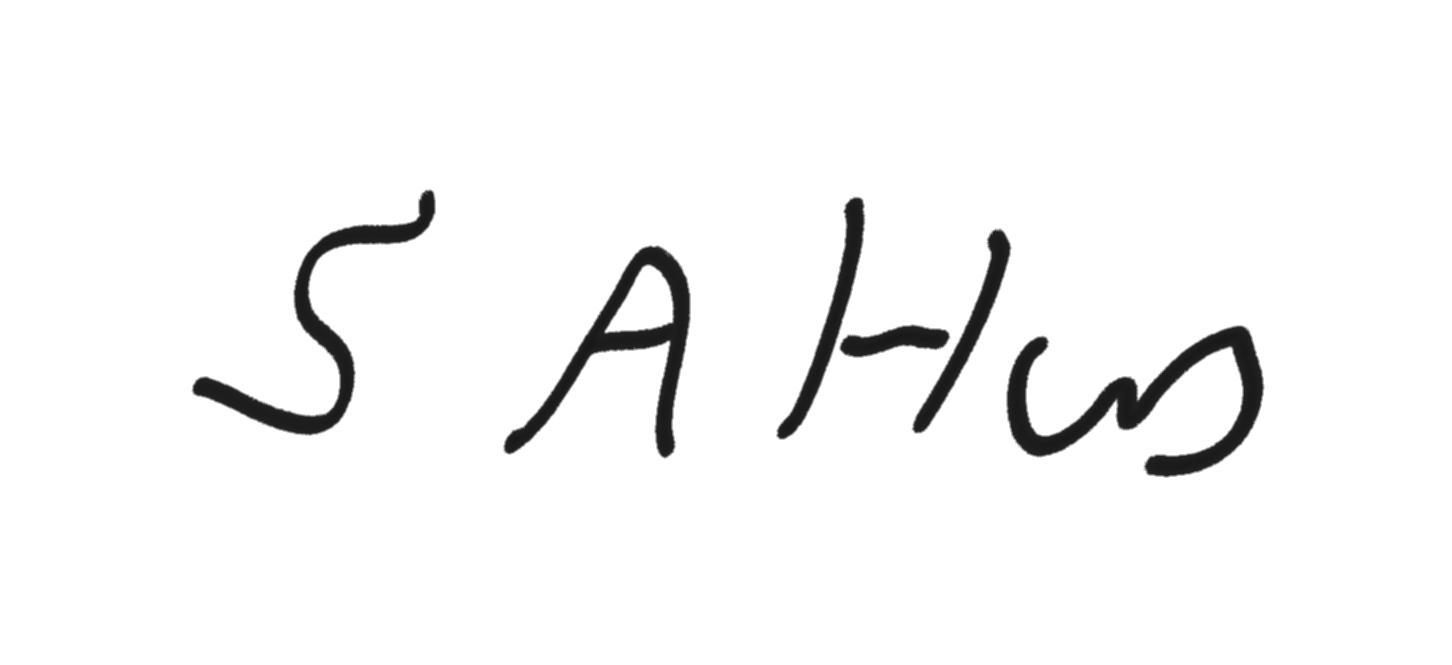 S A Hus